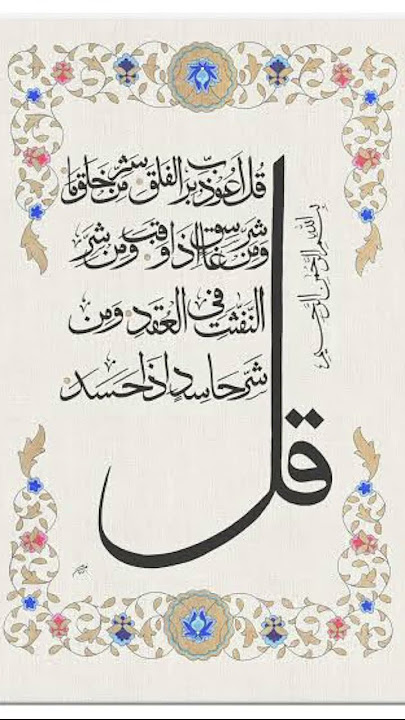 بسم الله الرحمن الرحيم
قل
قُل أعوذ برب الفلق من شر ما خلق
ومن شر غاسق اذا وقب ومن شر
النفثت في العقد ومن
شر حاسد اذا حسد